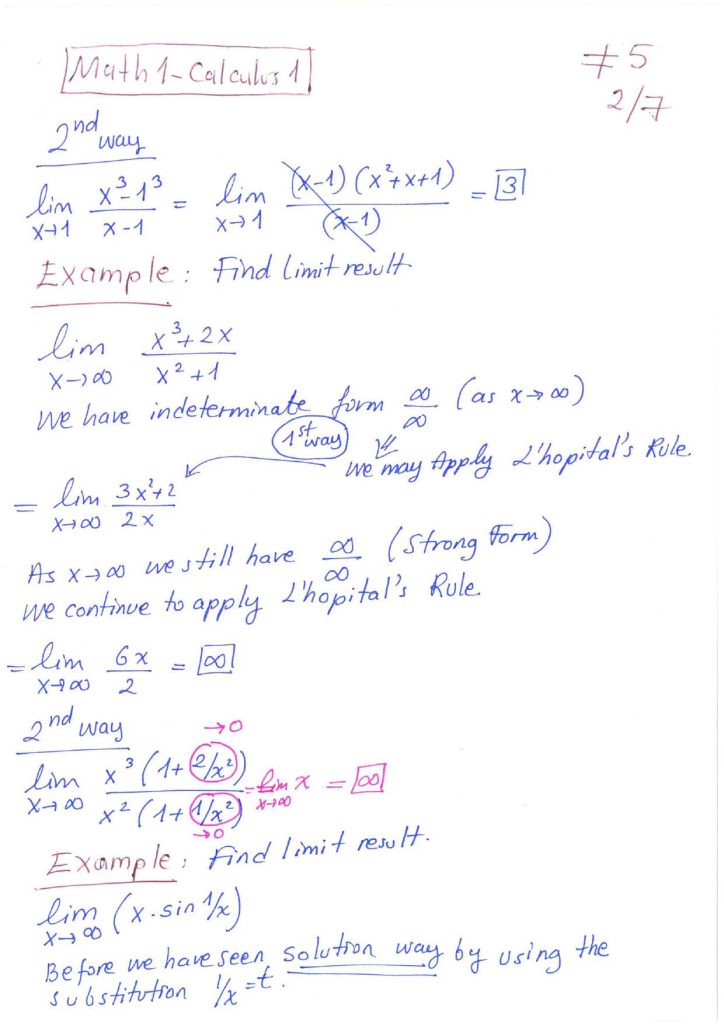 Math 1 - Calculus 1
#5
2/7
2nd way
lim x→1 (x³-1³)/(x-1) = lim x→1 (x-1)(x²+x+1)/(x-1) = 3
Example: Find limit result
lim x→∞ (x³+2x)/(x²+1)
We have indeterminate form ∞/∞ (as x→∞)
1st way
we may Apply L'hopital's Rule.
= lim x→∞ (3x²+2)/(2x)
As x→∞ we still have ∞/∞ (Strong Form)
we continue to apply L'hopital's Rule.
= lim x→∞ 6x/2 = ∞
2nd way
lim x→∞ x³(1+2/x²)/x²(1+1/x²) = lim x→∞ x = ∞
→0
→0
Example: Find limit result.
lim x→∞ (x.sin 1/x)
Before we have seen solution way by using the
substitution 1/x=t.